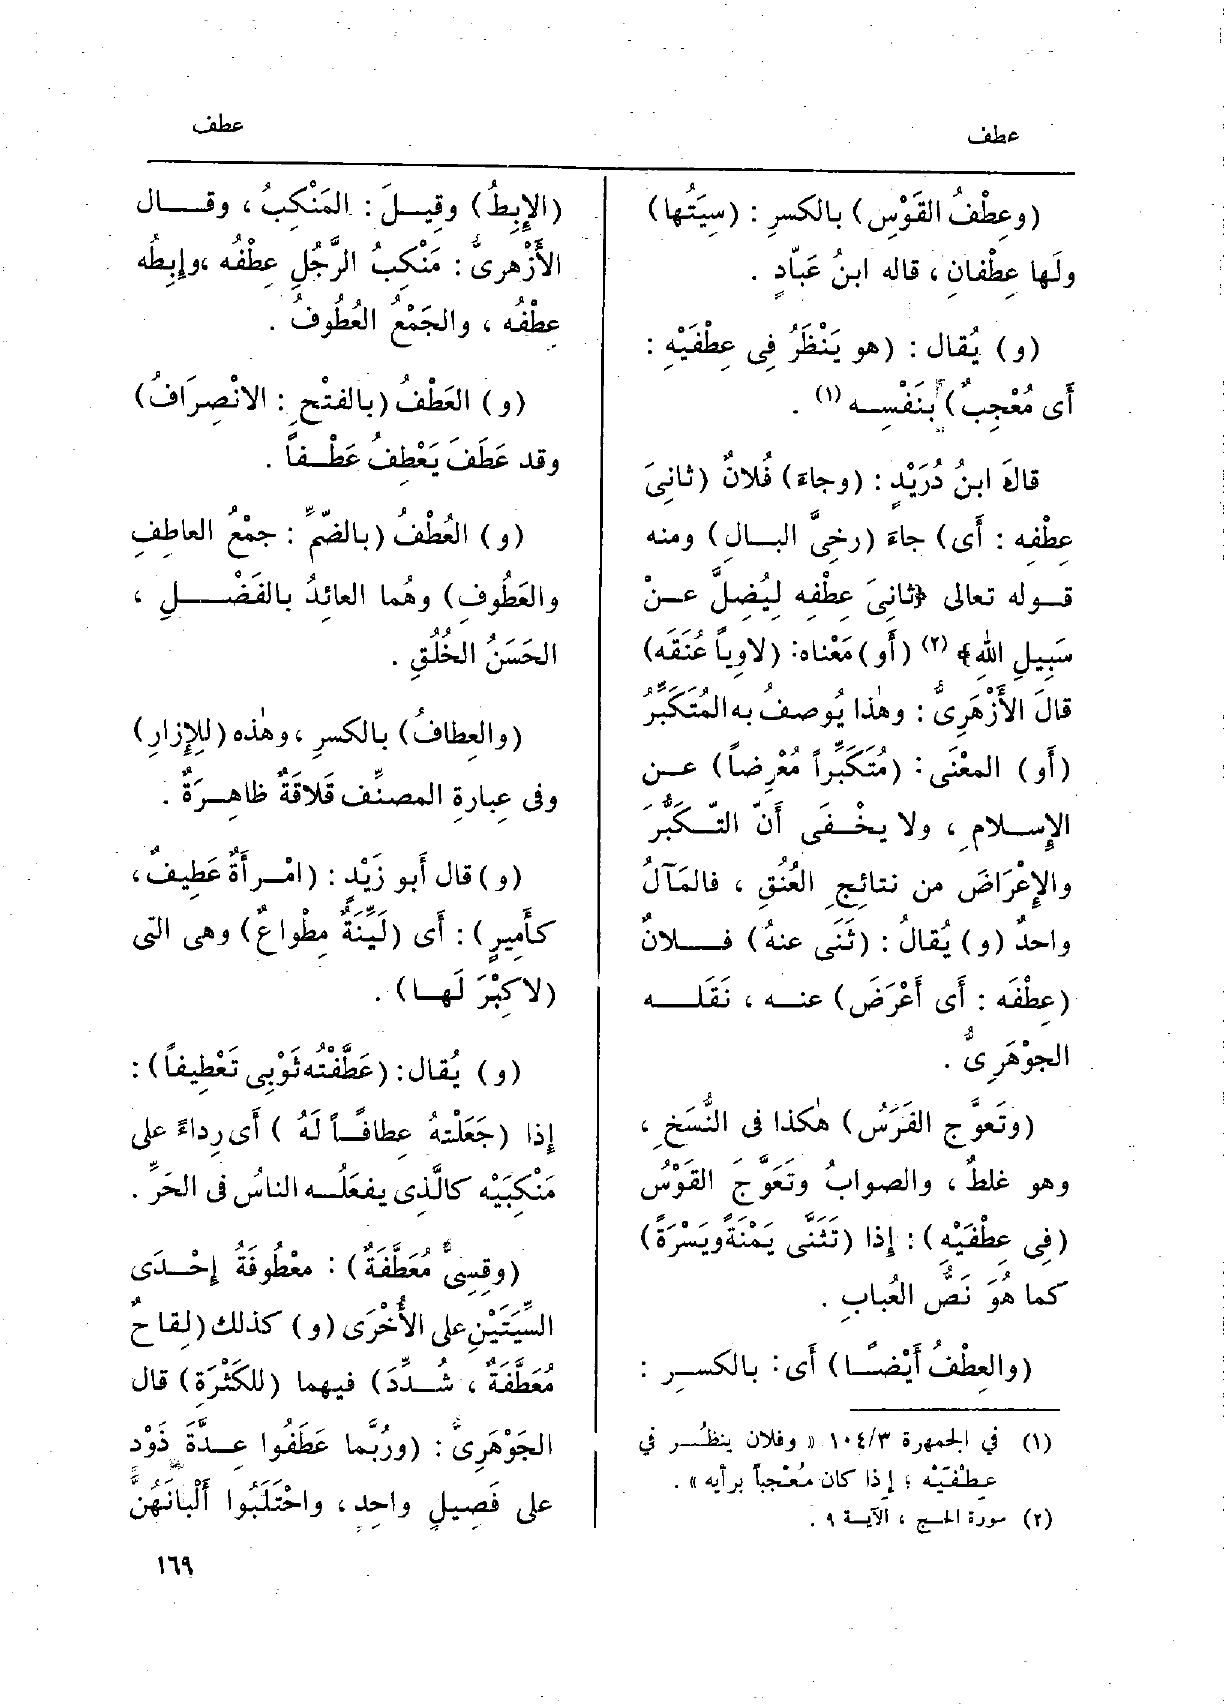 عطف
عطف
(وعِطْفُ القَوْسِ) بالكسرِ : (سِيَتُها)
ولَها عِطْفانِ ، قاله ابنُ عَبّادٍ .
(و) يُقال : (هو يَنْظَرُ فِى عِطْفَيْهِ :
أَى مُعْجِبٌ) بِنَفْسِـه (١) .
قالَ ابنُ دُرَيْدٍ : (وجاءَ) فُلانٌ (ثانِىَ
عِطْفِه : أَى) جاءَ (رخِىَّ البـالِ) ومنه
قـوله تعالى ﴿ثانِىَ عِطْفِه لِيُضِلَّ عـنْ
سَبِيلِ اللهِ﴾ (٢) (أَو) مَعْناه: (لاوِياً عُنَقَه)
قالَ الأَزْهَرِىُّ : وهٰذا يُوصفُ به المُتَكَبِّرُ
(أَو) المعْنَى : (مُتَكَبِّراً مُعْرِضاً) عـن
الإِسـلامِ ، ولا يخْـفَى أَنّ التّـكَبُّرَ
والإِعْرَاضَ من نتائِجِ العُنُقِ ، فالمَآلُ
واحدٌ (و) يُقالُ : (ثَنَى عنهُ) فـلانٌ
(عِطْفَه : أَى أَعْرَضَ) عنـه ، نَقَلـه
الجوْهَرِىُّ .
(وتَعوَّج الفَرَسُ) هٰكذا فى النُّسَخِ ،
وهو غلطٌ ، والصوابُ وتَعَوَّجَ القَوْسُ
(فِى عِطْفَيْهِ) : إِذا (تَثَنَّى يَمْنَةً ويَسْرَةً)
كما هُوَ نَصُّ العُبابِ .
(والعِطْفُ أَيْضـًا) أَى: بالكسرِ :
(١) في الجمهرة ١٠٤/٣ « وفلان ينظُـر في
عِـطْفَيْه ؛ إذا كان مُعْجباً برأيه » .
(٢) سورة الحـج ، الآيـة ٩ .
(الإِبِطُ) وقِيـلَ : المَنْكِبُ ، وقـال
الأَزْهرىُّ : مَنْكِبُ الرَّجُلِ عِطْفُه ،وإِبِطُه
عِطْفُه ، والجَمْعُ العُطُوفُ .
(و) العَطْفُ (بالفتْحِ : الانْصِرَافُ)
وقد عَطَفَ يَعْطِفُ عَطْـفاً .
(و) العُطْفُ (بالضّمِّ : جمْعُ العاطِفِ
والعَطُوفِ) وهُما العائِدُ بالفَضْـلِ ،
الحَسَنُ الخُلُقِ .
(والعِطافُ) بالكسرِ ،وهٰذه (للإِزارِ)
وفى عِبارةِ المصنِّف قَلاقَةٌ ظاهِـرَةٌ .
(و) قال أَبو زَيْدٍ : (امْـرأَةٌ عَطِيفٌ،
كأَمِيرٍ) : أَى (لَيِّنَةٌ مِطْواعٌ) وهى التى
(لا كِبْرَ لَهـا) .
(و) يُقال: (عَطَّفْتُه ثَوْبِى تَعْطِيفاً) :
إِذا (جَعَلْتهُ عِطافـًا لَهُ ) أَى رِداءً على
مَنْكِبَيْه كالَّذِى يفعَلُـه الناسُ فى الحَرِّ .
(وقِسِىٌّ مُعَطَّفَةٌ) : معْطُوفَةُ إِحْـدَى
السِّيَتَيْنِ على الأُخْرَى (و) كذلك (لِقاحٌ
مُعَطَّفَةٌ ، شُـدِّدَ) فيهما (للكَثْرَةِ) قال
الجَوْهَرِىُّ : (ورُبَّما عَطَفُوا عِـدَّةَ ذَوْدٍ
على فَصِيلٍ واحِدٍ، واحْتَلَبُوا أَلْبانَهُنَّ
١٦٩